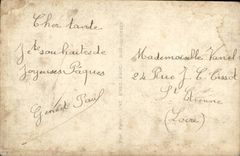 Cher tante
Je te souhaites de
Joyeuses Pâques
Genest Paul
Mademoiselle Vanel
24 Rue J. C. Tissot
St Etienne
(Loire)